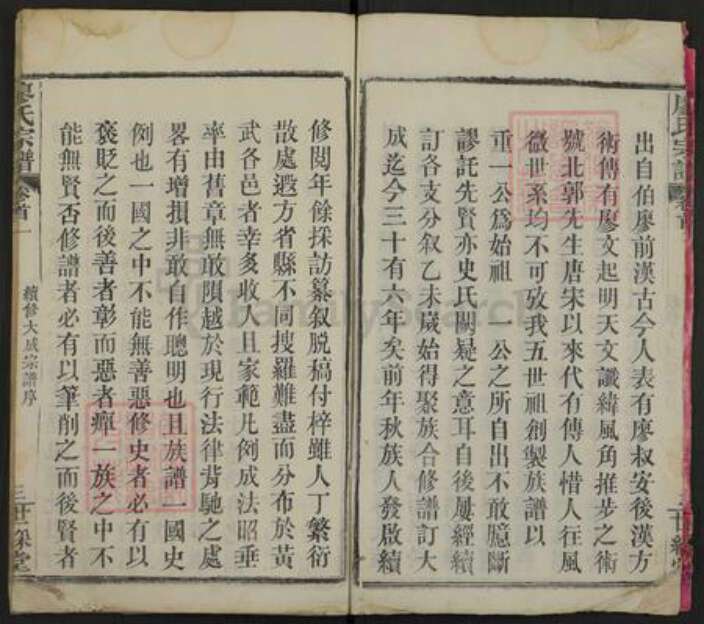 出自伯廖前漢古今人表有廖叔安後漢方
術傳有廖文起明天文讖緯風角推步之術
號北郭先生唐宋以來代有傳人惜人往風
微世系均不可攷我五世祖創製族譜以
重一公爲始祖 一公之所自出不敢臆斷
謬託先賢亦史氏闕疑之意耳自後屢經續
訂各支分叙乙未嵗始得聚族合修譜訂大
成迄今三十有六年矣前年秋族人發啟續
修閱年餘採訪纂叙脱稿付梓雖人丁繁衍
散處遐方省縣不同搜羅難盡而分布於黃
武各邑者幸多收入且家範凡例成法昭垂
率由舊章無敢隕越於現行法律背馳之處
畧有增損非敢自作聰明也且族譜一國史
例也一國之中不能無善惡修史者必有以
褒貶之而後善者彰而惡者癉一族之中不
能無賢否修譜者必有以筆削之而後賢者
廖氏宗譜 卷首一
續修大成宗譜序
三 世綵堂
FamilySearch